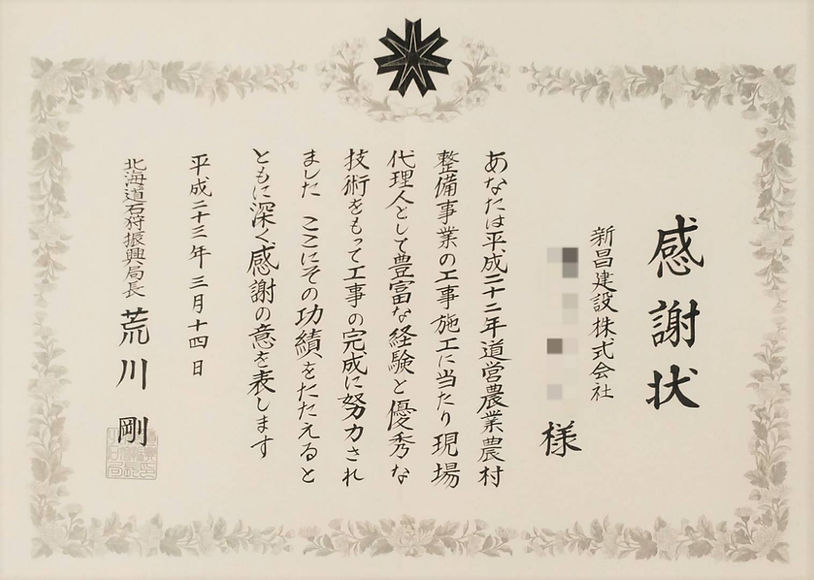 感謝状
新昌建設株式会社
様
あなたは平成二十二年道営農業農村
整備事業の工事施工に当たり現場
代理人として豊富な経験と優秀な
技術をもって工事の完成に努力され
ました ここにその功績をたたえると
ともに深く感謝の意を表します
平成二十三年三月十四日
北海道石狩振興局長 荒川 剛